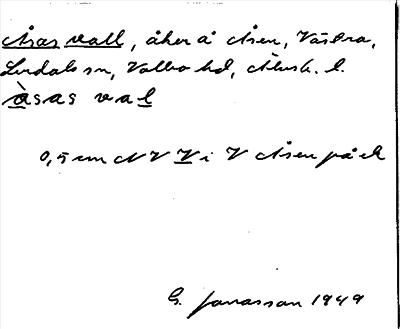 Åsas vall, åker å Åsen, Västra,
Lerdals sn, Valbo hd, Älvsb. l.
àsas val
0,5 cm NV V i V Åsen på ek
G. Jonasson 1949